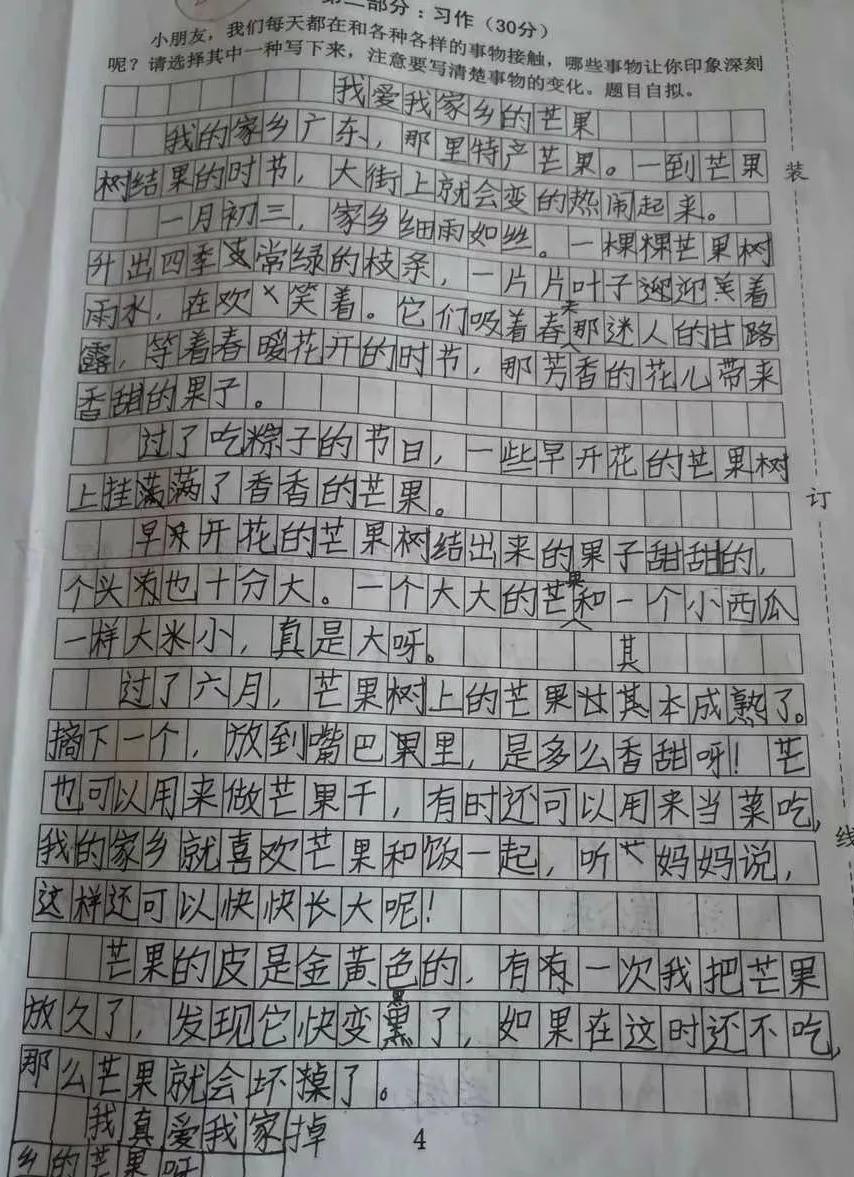 第二部分：习作（30分）
小朋友，我们每天都在和各种各样的事物接触，哪些事物让你印象深刻
呢？请选择其中一种写下来，注意要写清楚事物的变化。题目自拟。
我爱我家乡的芒果
我的家乡广东，那里特产芒果。一到芒果
树结果的时节，大街上就会变的热闹起来。
一月初三，家乡细雨如丝。一棵棵芒果树
升出四季常绿的枝条，一片片叶子迎着
雨水，在欢笑着。它们吸着春来那迷人的甘
露，等着春暖花开的时节，那芳香的花儿带来
香甜的果子。
过了吃粽子的节日，一些早开花的芒果树
上挂满了香香的芒果。
早开花的芒果树结出来的果子甜甜的，
个头也十分大。一个大大的芒果和一个小西瓜
一样大小，真是大呀。
过了六月，芒果树上的芒果其本成熟了。
摘下一个，放到嘴巴里，是多么香甜呀！芒
也可以用来做芒果干，有时还可以用来当菜吃，
我的家乡就喜欢芒果和饭一起，听妈妈说，
这样还可以快快长大呢！
芒果的皮是金黄色的，有一次我把芒果
放久了，发现它快变黑了，如果在这时还不吃，
那么芒果就会坏掉了。
我真爱我家
乡的芒果呀
4
装
订
线